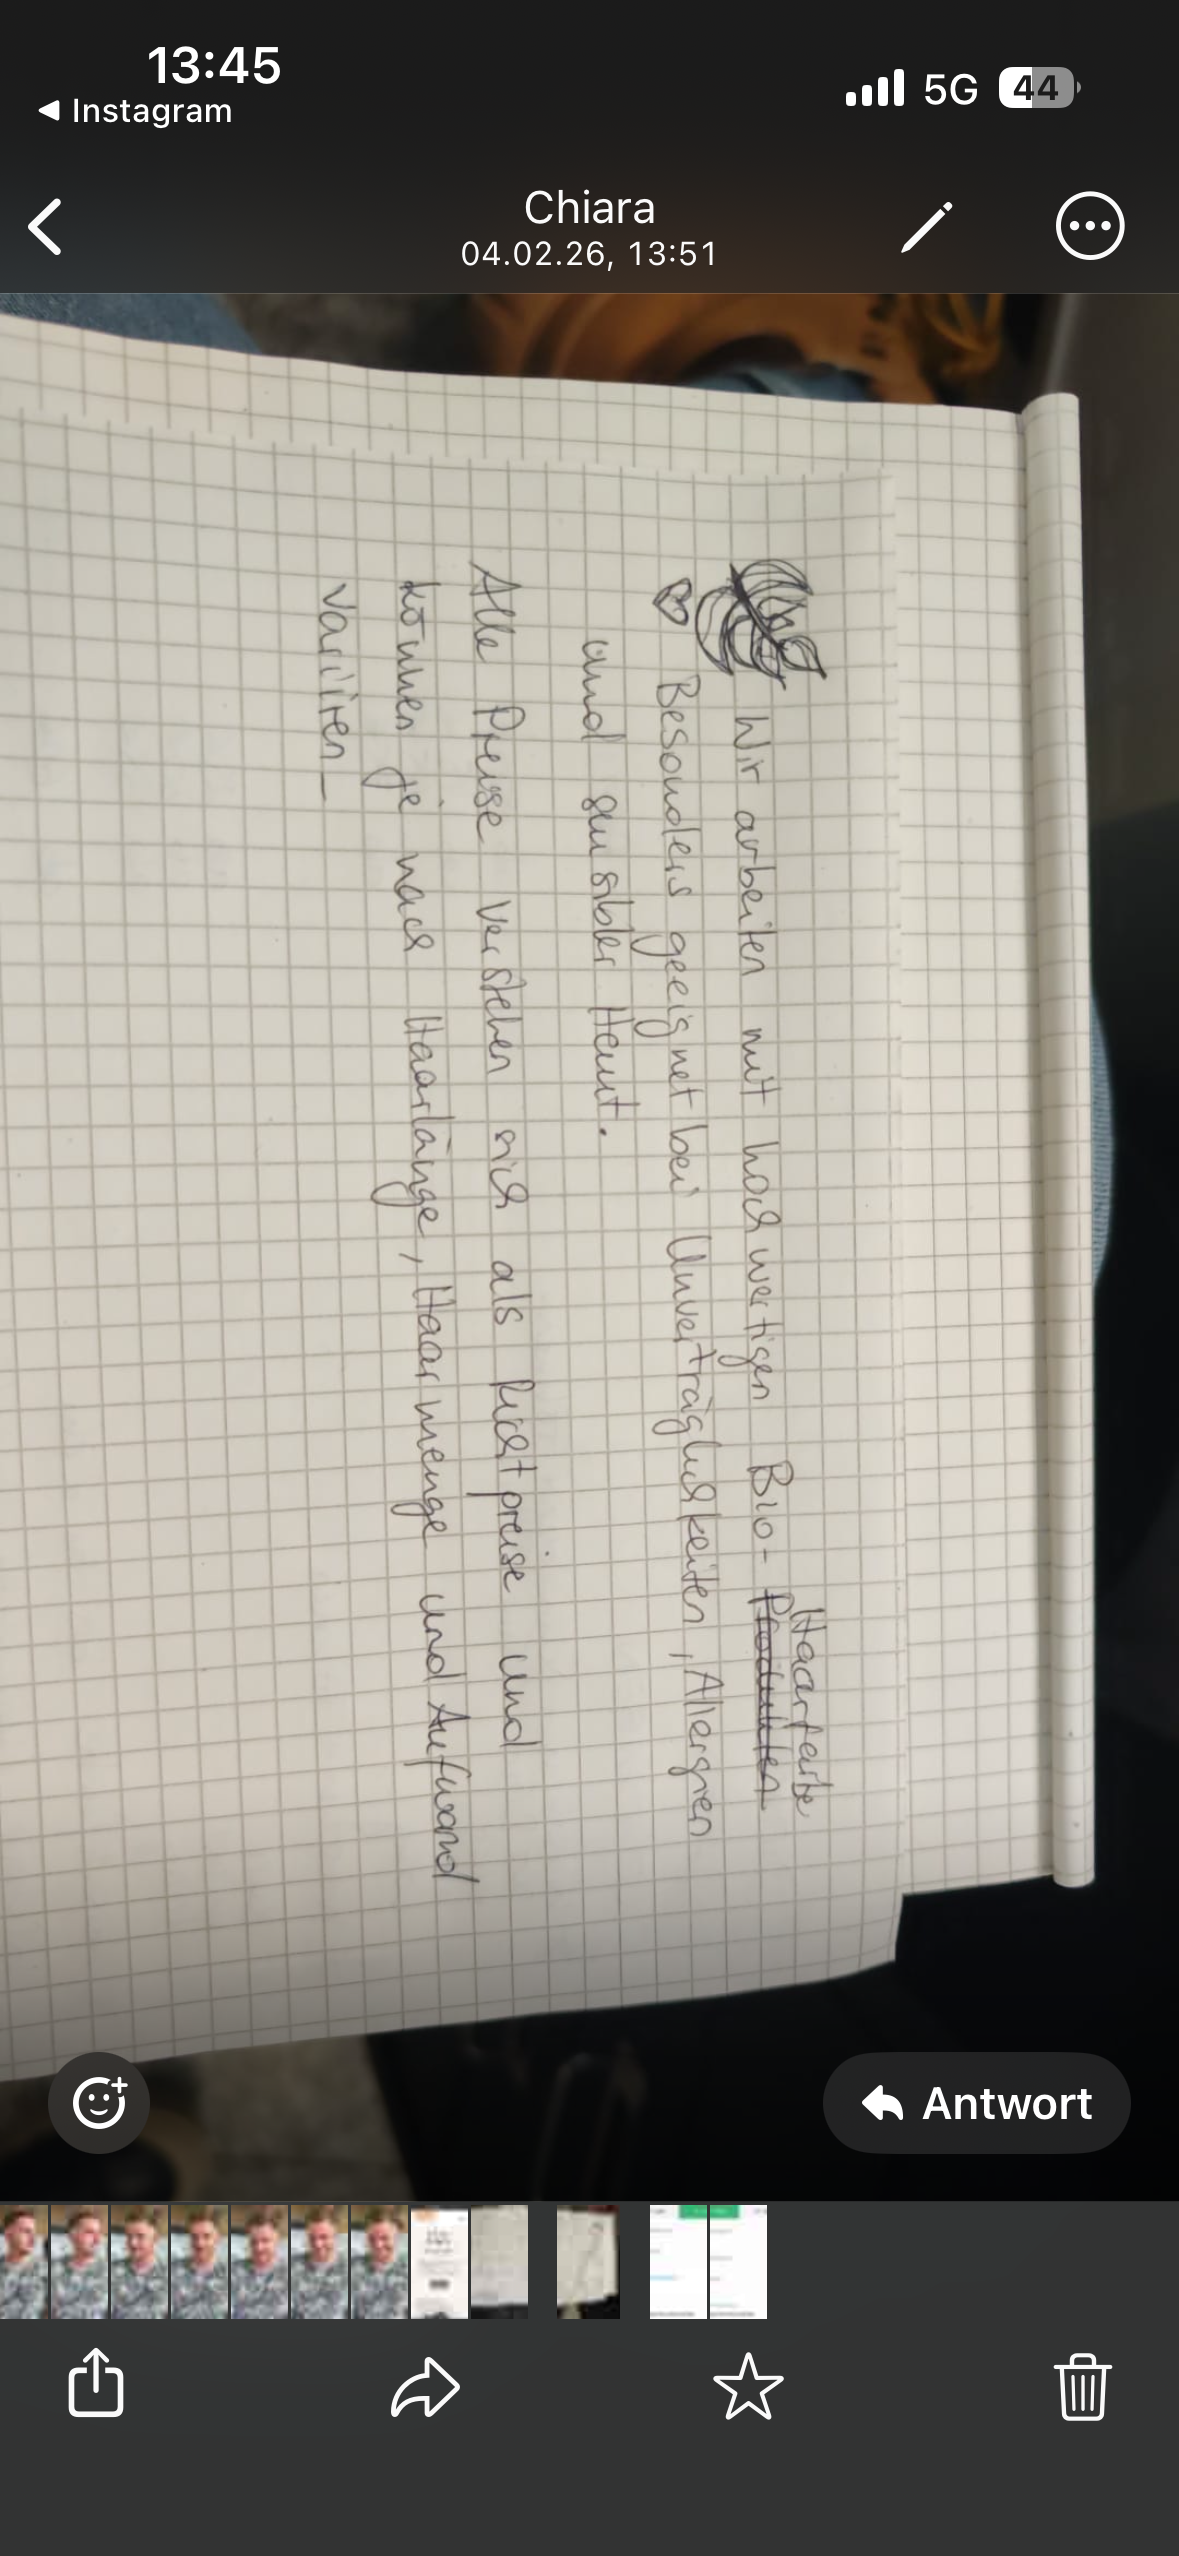 13:45
Instagram
5G
44
Chiara
04.02.26, 13:51
Haarfarbe
Wir arbeiten mit hochwertigen Bio- Produkten
♡ Besonders geeignet bei Unverträglichkeiten, Allergien
und sensibler Haut.
Alle Preise verstehen sich als Richtpreise und
können je nach Haarlänge, Haarmenge und Aufwand
variiren
Antwort